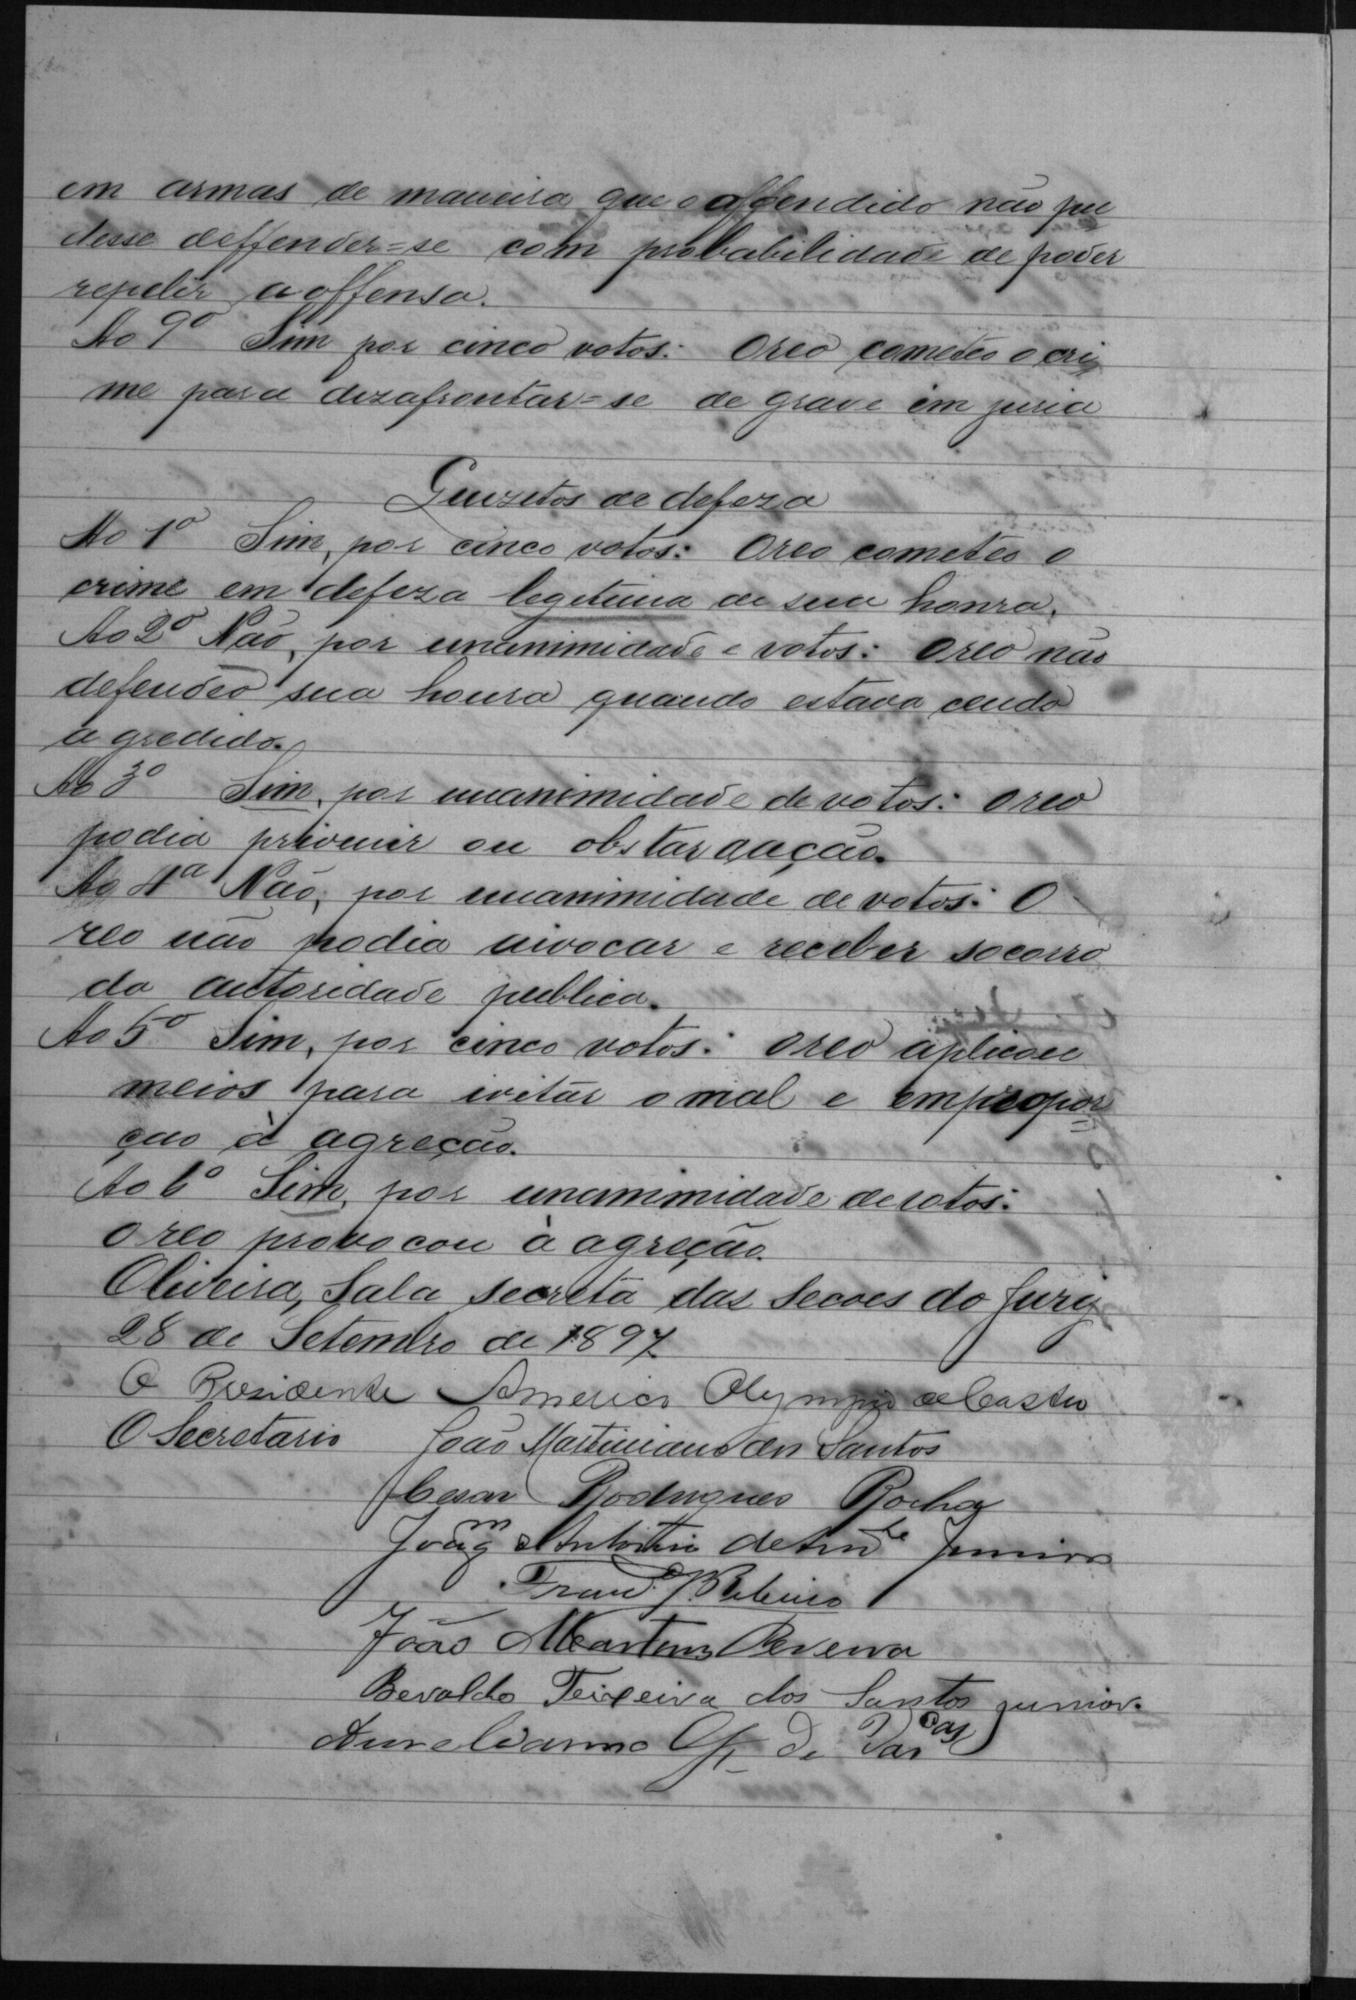 em armas de maneira que o offendido não pu
desse deffender=se com probabilidade de poder
repelir a offensa.
Ao 9º Sim por cinco votos: O reo cometeo o cri
me para dezafrontar=se de grave em juria
Quezitos de defeza
Ao 1º Sim, por cinco votos: O reo cometeo o
crime em defeza legitima de sua honra.
Ao 2º Não, por unanimidade e votos: O reo não
defendeo sua honra quando estava cendo
agredido.
Ao 3º Sim, por unanimidade de votos: O reo
podia privenir ou obstar aação.
Ao 4º Não, por unanimidade de votos: O
reo não podia invocar e receber socorro
da autoridade publica.
Ao 5º Sim, por cinco votos: O reo aplicou
meios para evitar o mal e em propor
ção à agreção.
Ao 6º Sim, por unanimidade de votos:
O reo provocou à agreção.
Oliveira, Sala secreta das Secoes do Jury
28 de Setembro de 1897
O Presidente Americo Olympio de Castro
O Secretario João Martiniano dos Santos
Cesar Rodrigues Rocha
Joaqm Antonio de Andre Junior
Franco Ribeiro
João Martins Pereira
Beraldo Teixeira dos Santos junior.
Aurelianno de